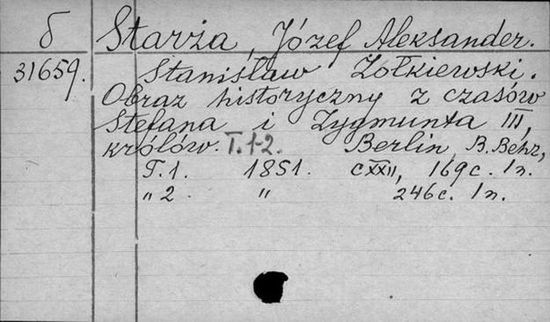 б Starża, Józef Aleksander.
31659. Stanisław Żołkiewski.
Obraz historyczny z czasów
Stefana i Zygmunta III,
królów. T.1-2. Berlin, B. Behr,
T.1. 1851. cXXII, 169 c. 1 n.
„ 2 „ 246 c. 1 n.